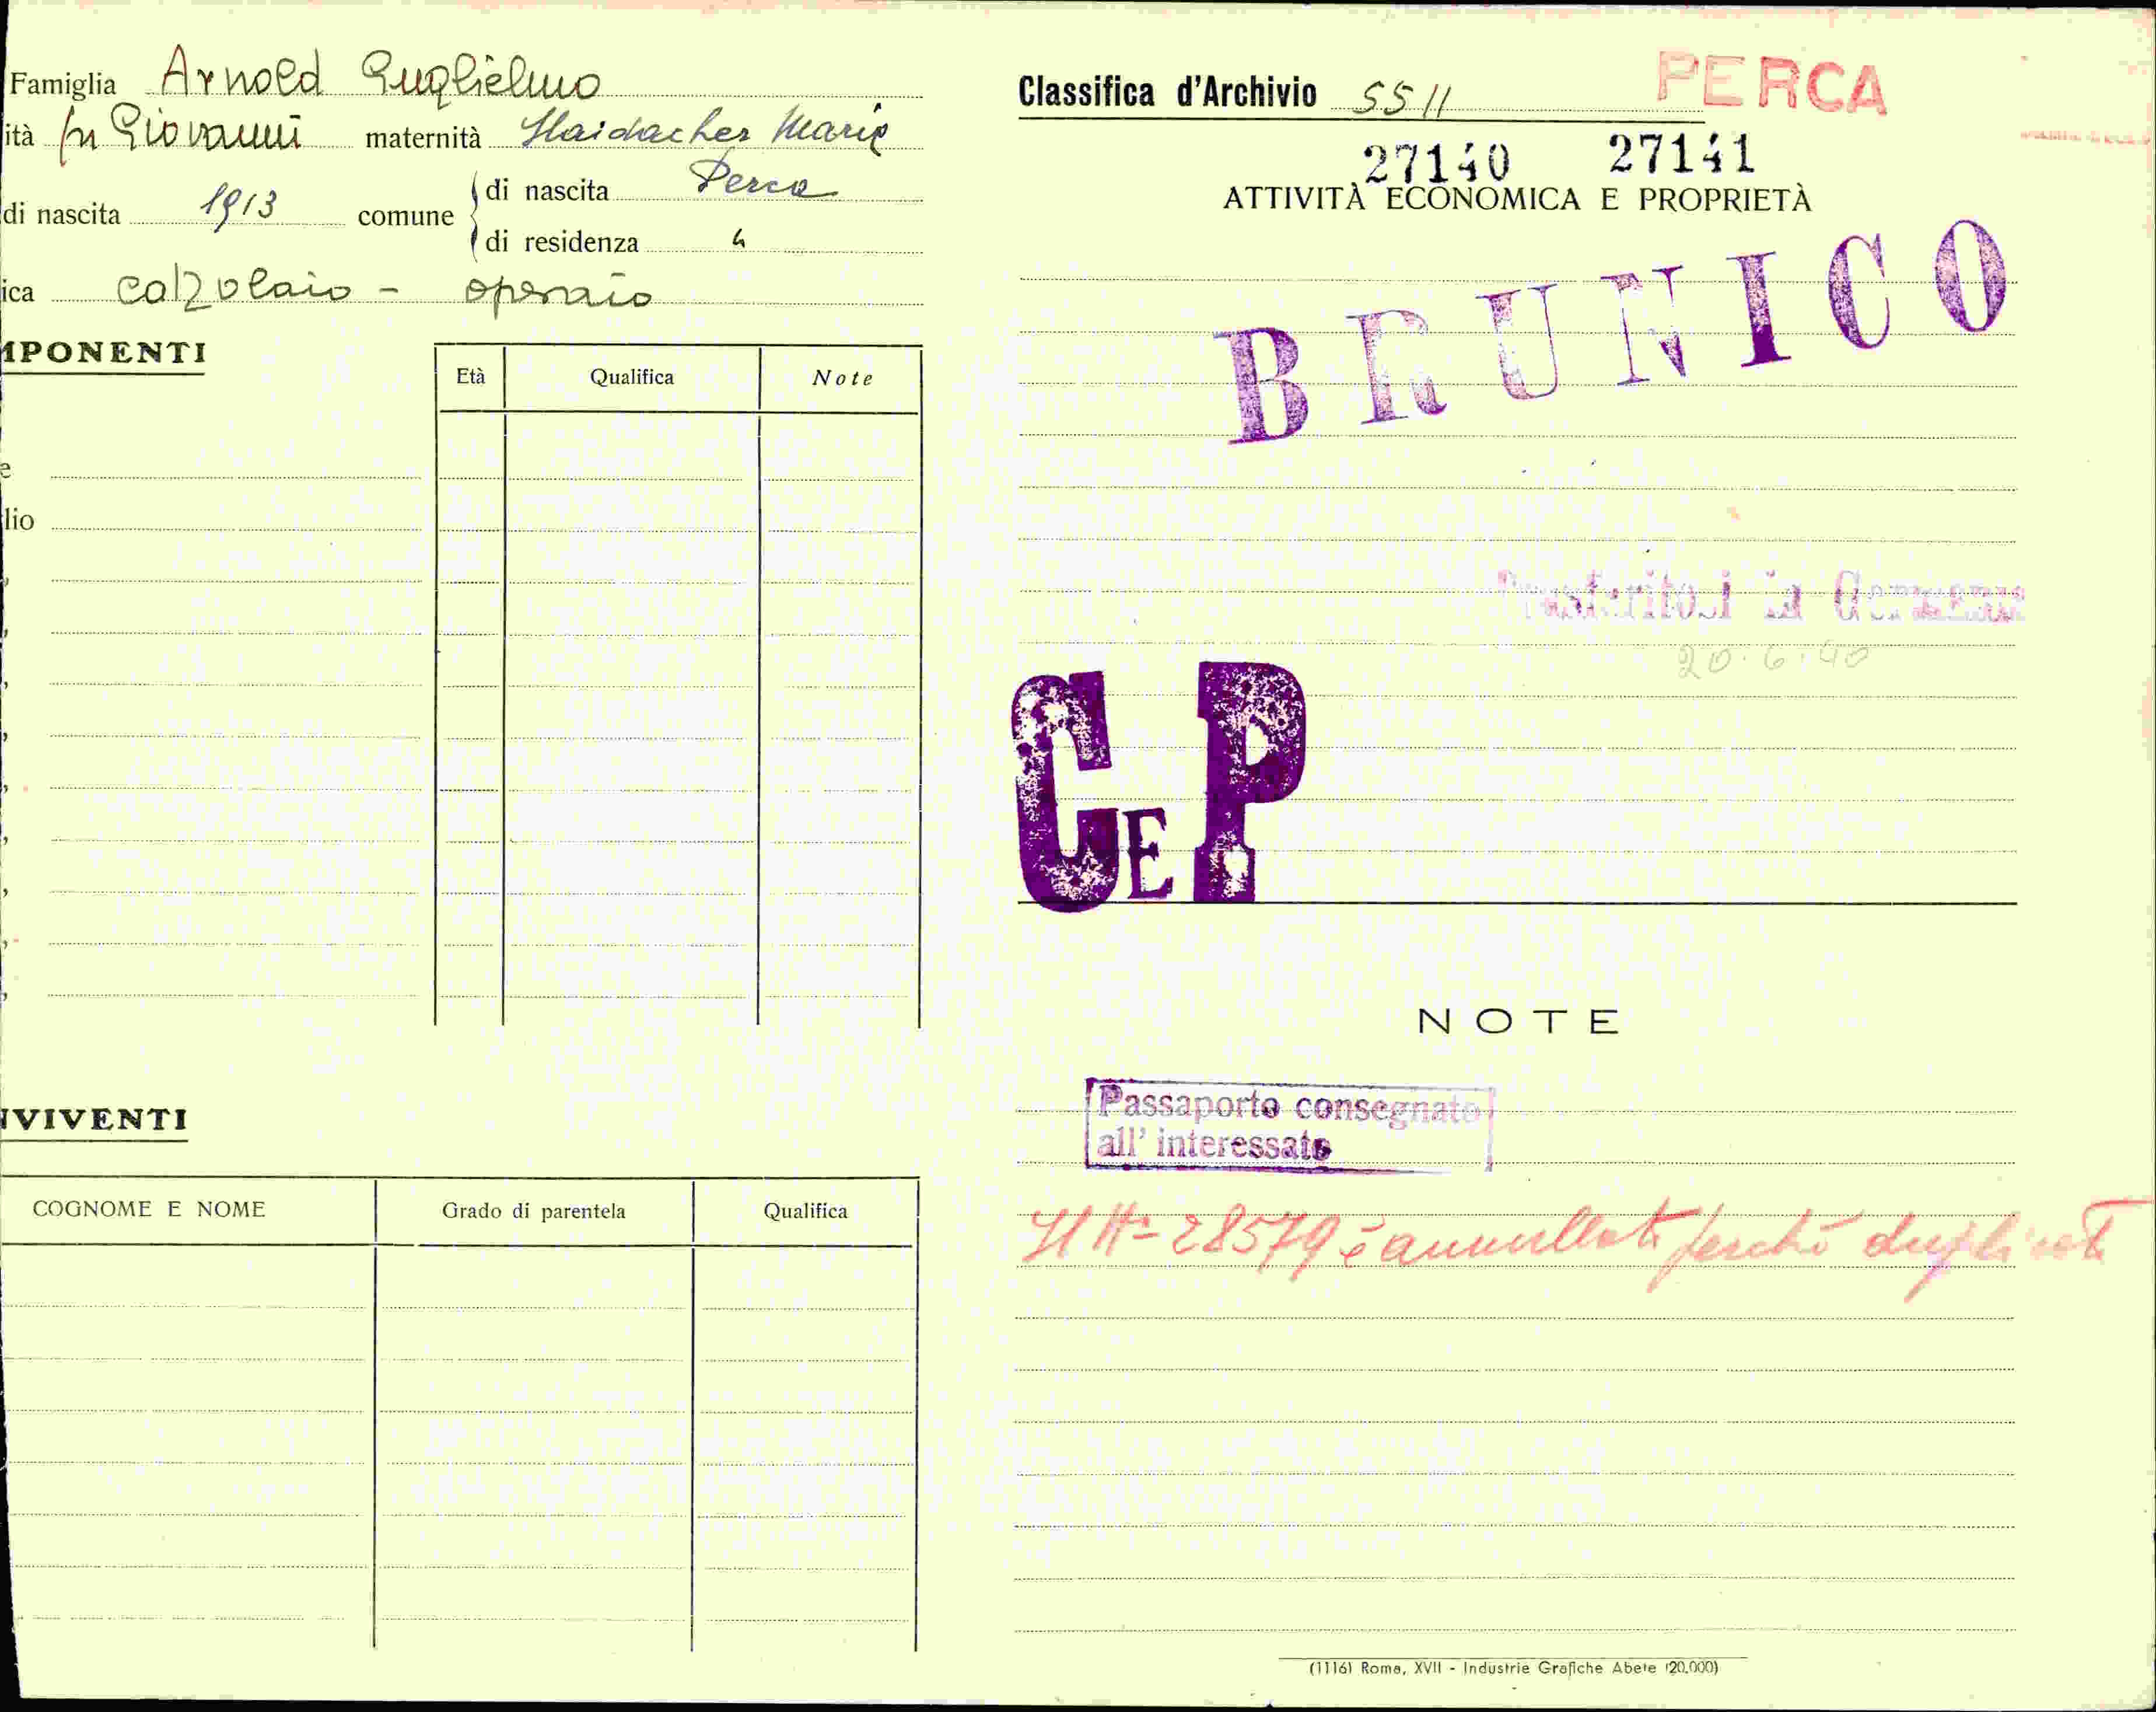 Famiglia Arnold Guglielmo
ità fu Giovanni maternità Haidacher Maria
di nascita 1913 comune di nascita Perca
di residenza "
ica calzolaio - operaio
MPONENTI
Età Qualifica Note
e
lio
NVIVENTI
COGNOME E NOME Grado di parentela Qualifica
Classifica d'Archivio 5511 PERCA
27140 27141
ATTIVITÀ ECONOMICA E PROPRIETÀ
BRUNICO
Trasferitosi in Germania
20.6.40
C E P
NOTE
Passaporto consegnato
all' interessato
Il N= 28579 è annullato perchè duplicato
(1116) Roma, XVII - Industrie Grafiche Abete (20.000)